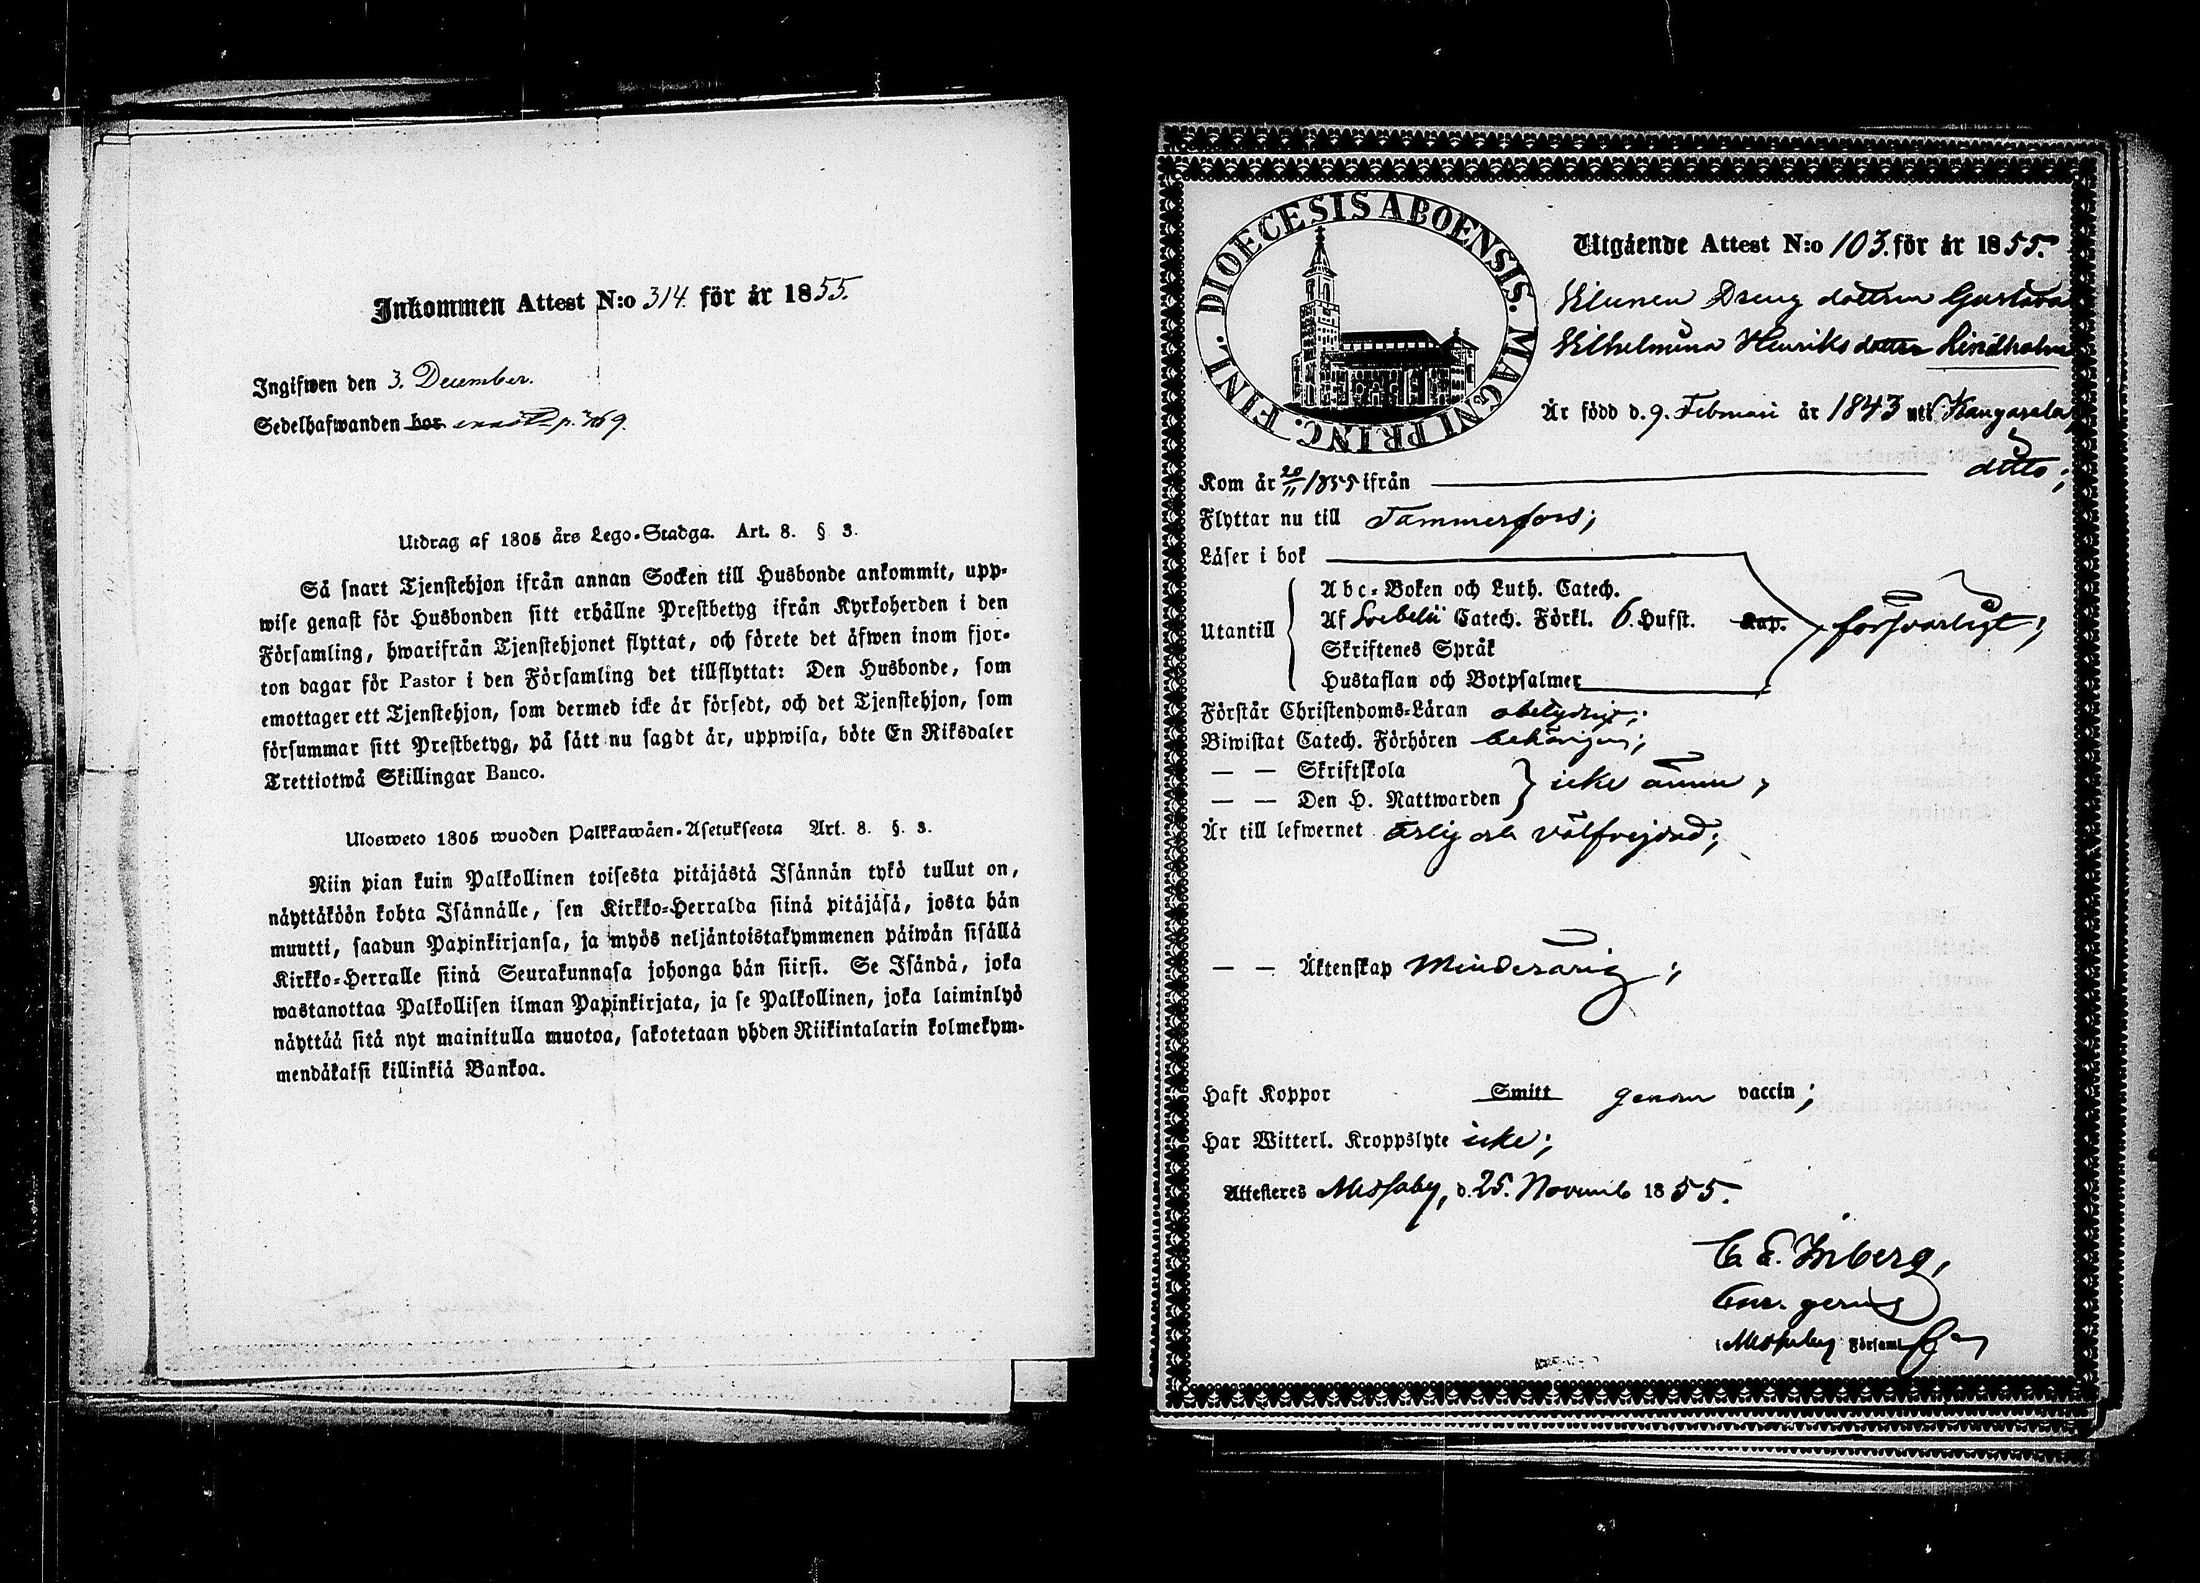 Inkommen Attest N:o 314. för år 1855.
Ingifwen den 3. December.
Sedelhafwanden bor p. 369.
Utdrag af 1805 års Lego-Stadga. Art. 8. § 3.
Så snart Tjenstehjon ifrån annan Socken till Husbonde ankommit, upp-
wise genast för Husbonden sitt erhållne Prestbetyg ifrån Kyrkoherden i den
Församling, hwarifrån Tjenstehjonet flyttat, och förete det äfwen inom fjor-
ton dagar för Pastor i den Församling det tillflyttat: Den Husbonde, som
emottager ett Tjenstehjon, som dermed icke är försedt, och det Tjenstehjon, som
försummar sitt Prestbetyg, på sätt nu sagdt är, uppwisa, böte En Riksdaler
Trettiotwå Skillingar Banco.
Ulosweto 1805 wuoden Palkkawäen-Asetuksesta Art. 8. §. 3.
Niin pian kuin Palkollinen toisesta pitäjästä Isännän tykö tullut on,
näyttäköön kohta Isännälle, sen Kirkko-Herralda siinä pitäjäsä, josta hän
muutti, saadun Papinkirjansa, ja myös neljäntoistakymmenen päiwän sisällä
Kirkko-Herralle siinä Seurakunnasa johonga hän siirsi. Se Isändä, joka
wastanottaa Palkollisen ilman Papinkirjata, ja se Palkollinen, joka laiminlyö
näyttää sitä nyt mainitulla muotoa, sakotetaan yhden Riikintalarin kolmekym-
mendäkaksi killinkiä Bankoa.
DIOECESIS ABOENSIS. MAGNI PRINC. FINL.
Utgående Attest N:o 103. för år 1855.
Dreng dottren Gustava
Vilhelmina Henriksdotter Lindholm
Är född d. 9. Februari år 1843 uti Kangasala,
Kom år 20/11 1855 ifrån ditto;
Flyttar nu till Tammerfors;
Läser i bok
Abc-Boken och Luth. Catech.
Utantill Af Svebelii Catech. Förkl. 6. Hufst. Kap. försvarligt;
Skriftenes Språk
Hustaflan och Botpsalmer
Förstår Christendoms-Läran obetydligt;
Biwistat Catech. Förhören behörigen;
— — Skriftskola
— — Den H. Nattwarden icke ännu;
Är till lefwernet ärlig och välfrejdad;
— — Äktenskap Minderårig;
Haft Koppor Smitt genom vaccin;
Har Witterl. Kroppslyte icke;
Attesteres Messuby, d. 25. Novemb 1855.
C. E. Inberg,
i Messuby Församl